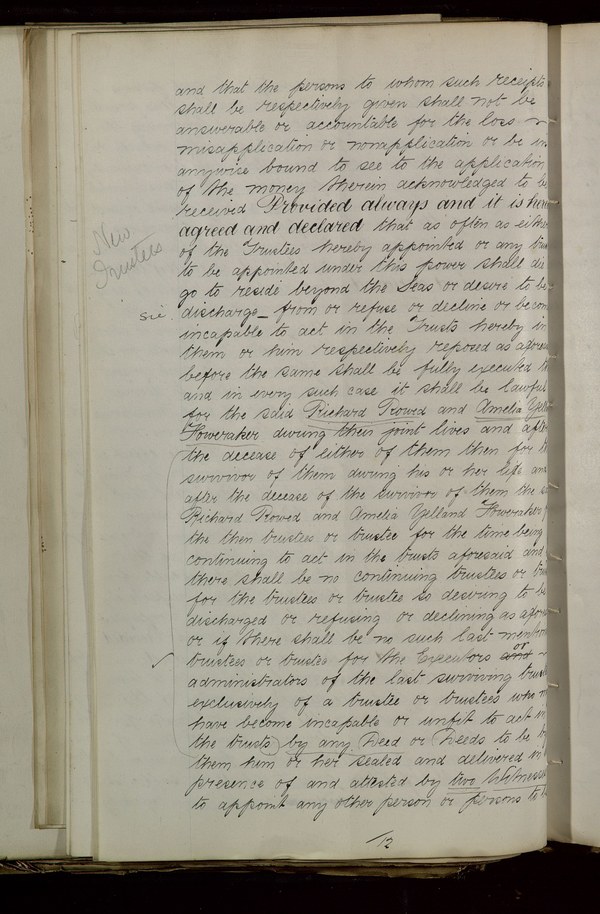 and that the persons to whom such receipts
shall be respectively given shall not be
answerable or accountable for the loss
misapplication or nonapplication or be in
anywise bound to see to the application
of the money therein acknowledged to be
received Provided always and it is
agreed and declared that as often as
of the Trustees hereby appointed or any
to be appointed under this power shall die
New
Trustees
go to reside beyond the Seas or desire to be
sic.
discharge from or refuse or decline or
incapable to act in the Trusts hereby in
them or him respectively reposed as
before the same shall be fully executed
and in every such case it shall be
for the said Richard Rowed and Amelia
Floweraker during their joint lives and
the decease of either of them then for
survivor of them during his or her life and
after the decease of the survivor of them the
Richard Rowed and Amelia Yelland Floweraker
the then trustees or trustee for the time being
continuing to act in the trusts aforesaid and
there shall be no continuing trustees or
for the trustees or trustee so desiring to be
discharged or refusing or declining as
or if there shall be no such last
trustees or trustee for the Executors and or
administrators of the last surviving
exclusively of a trustee or trustees who
have become incapable or unfit to act in
the trusts) by any Deed or Deeds to be by
them him or her sealed and delivered in
presence of and attested by two Witnesses
to appoint any other person or persons to
12